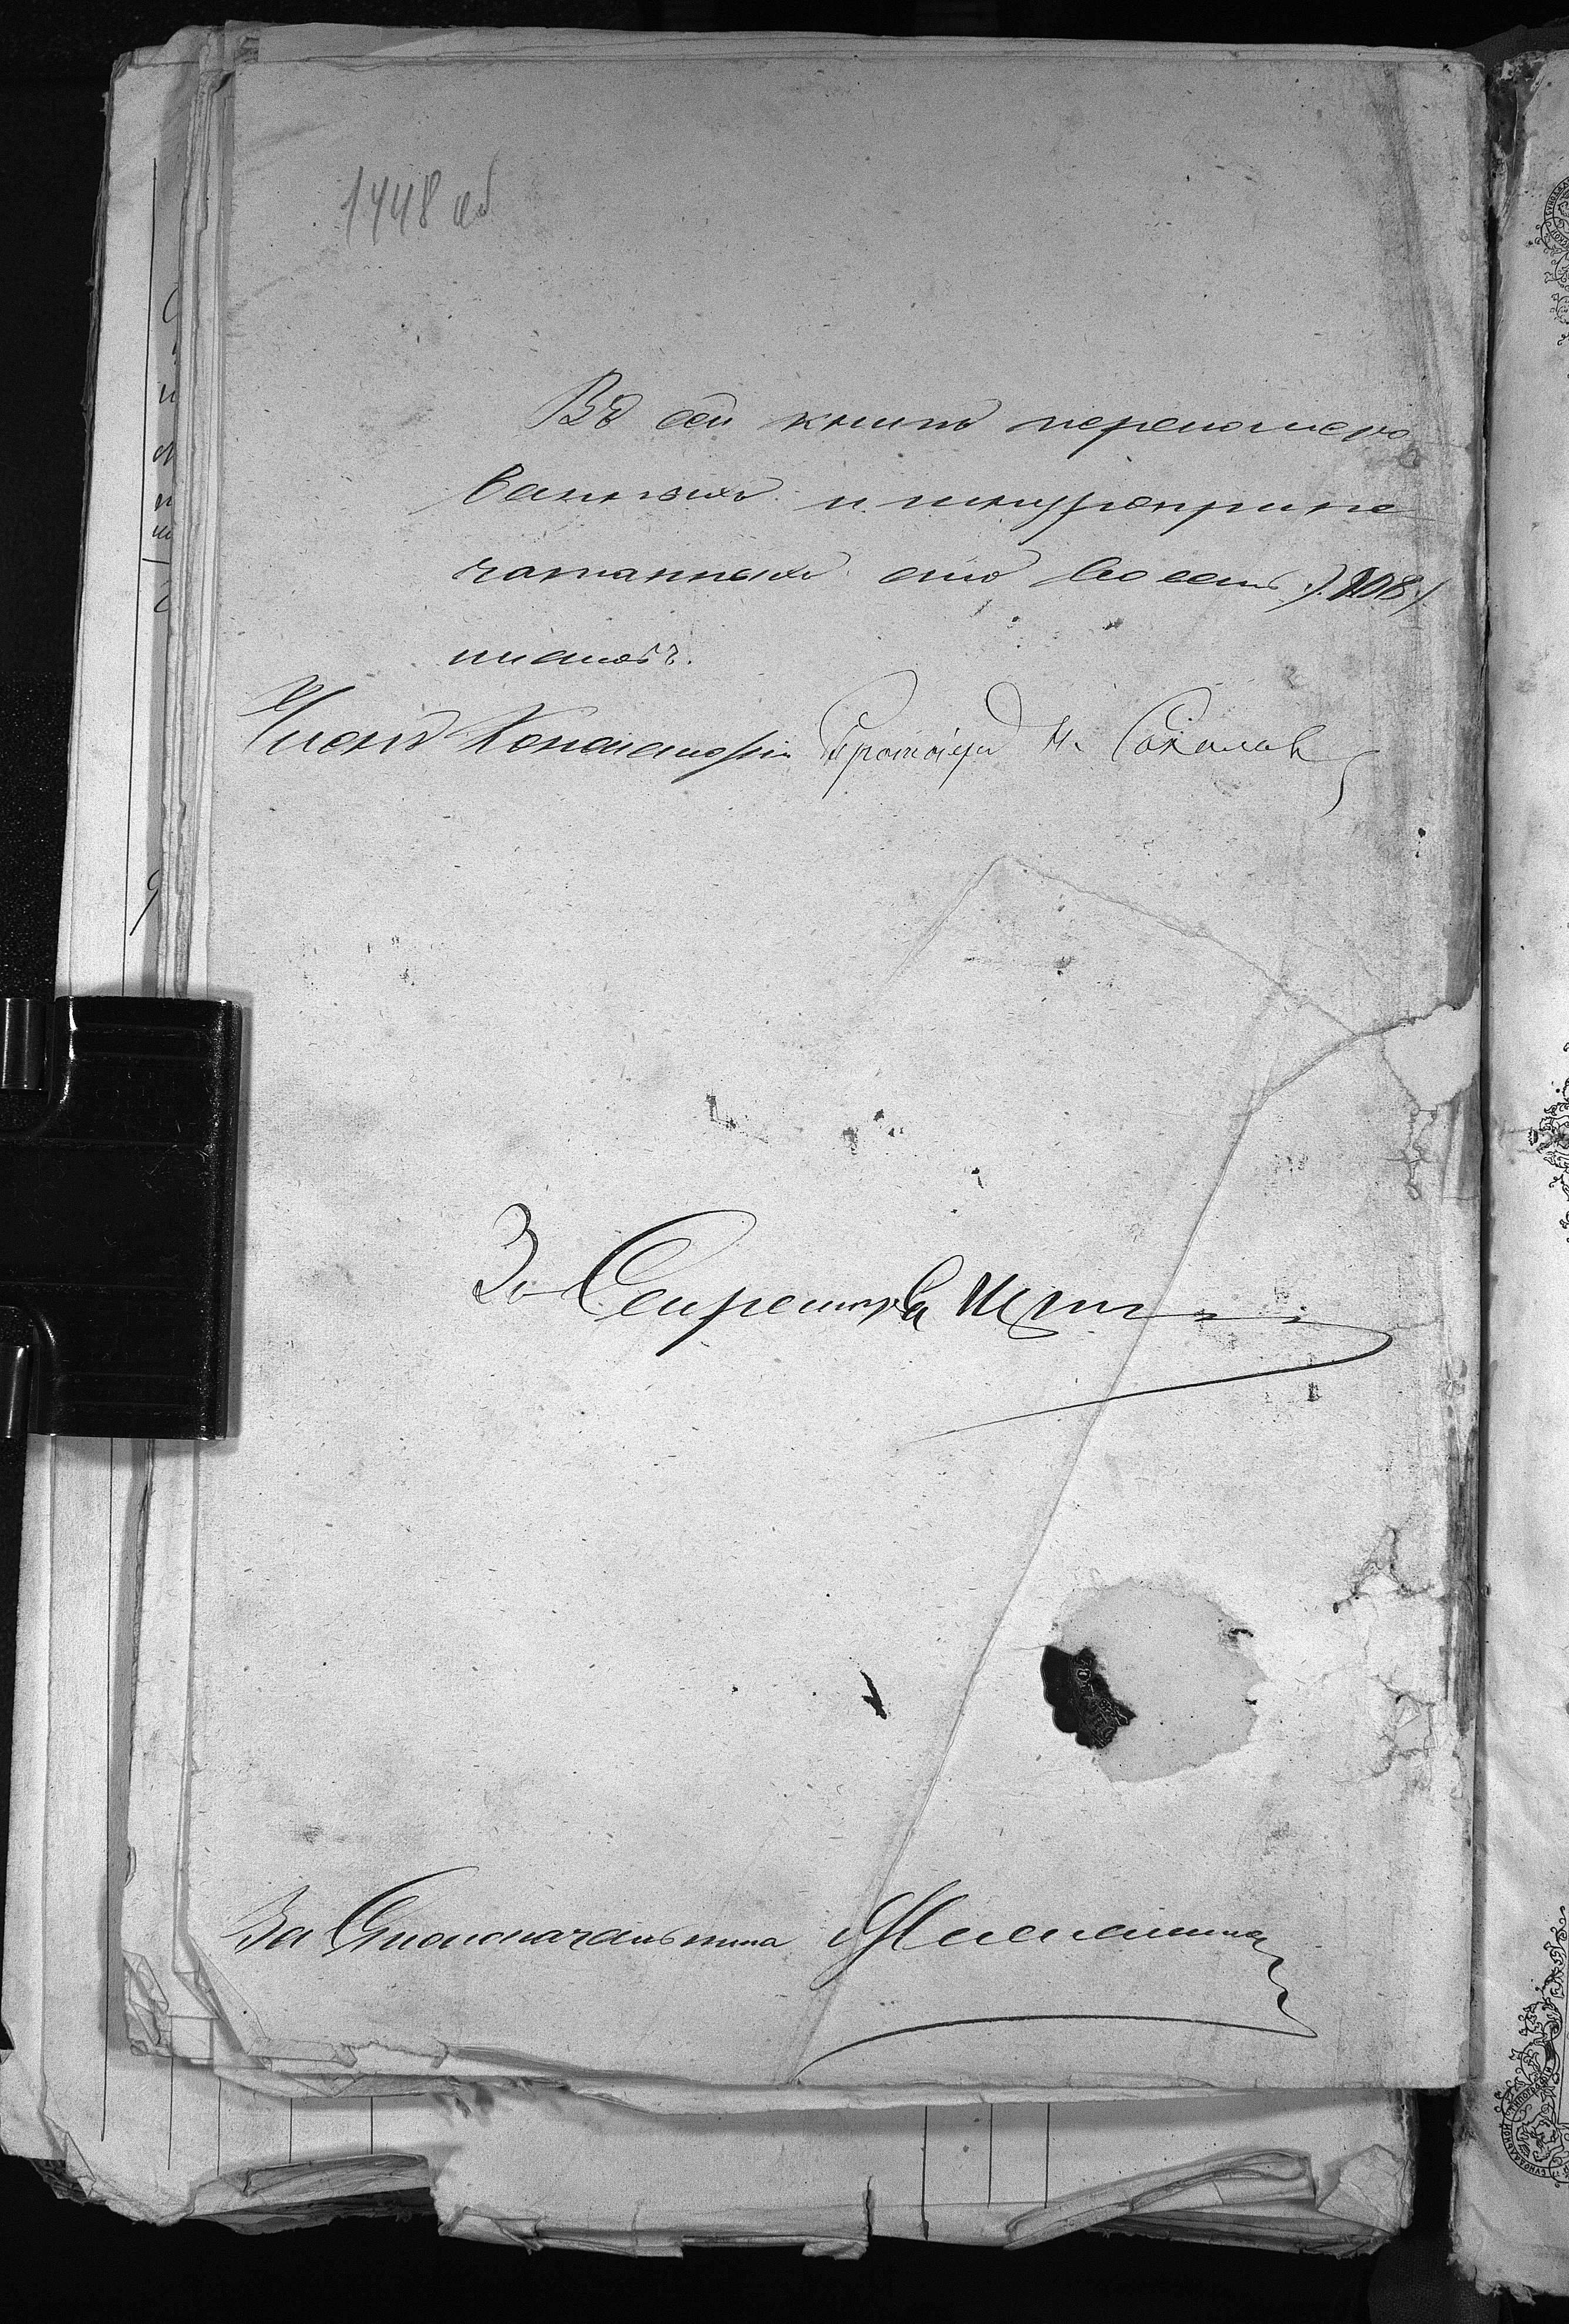 1448 об
Въ сей книгѣ перенумеро
ванныхъ и шнуроприпе
чатанныхъ сто восемь /108/
листовъ.
Членъ Консисторіи Протоіерей Н. Соколов
За Секретаря
За Столоначальника